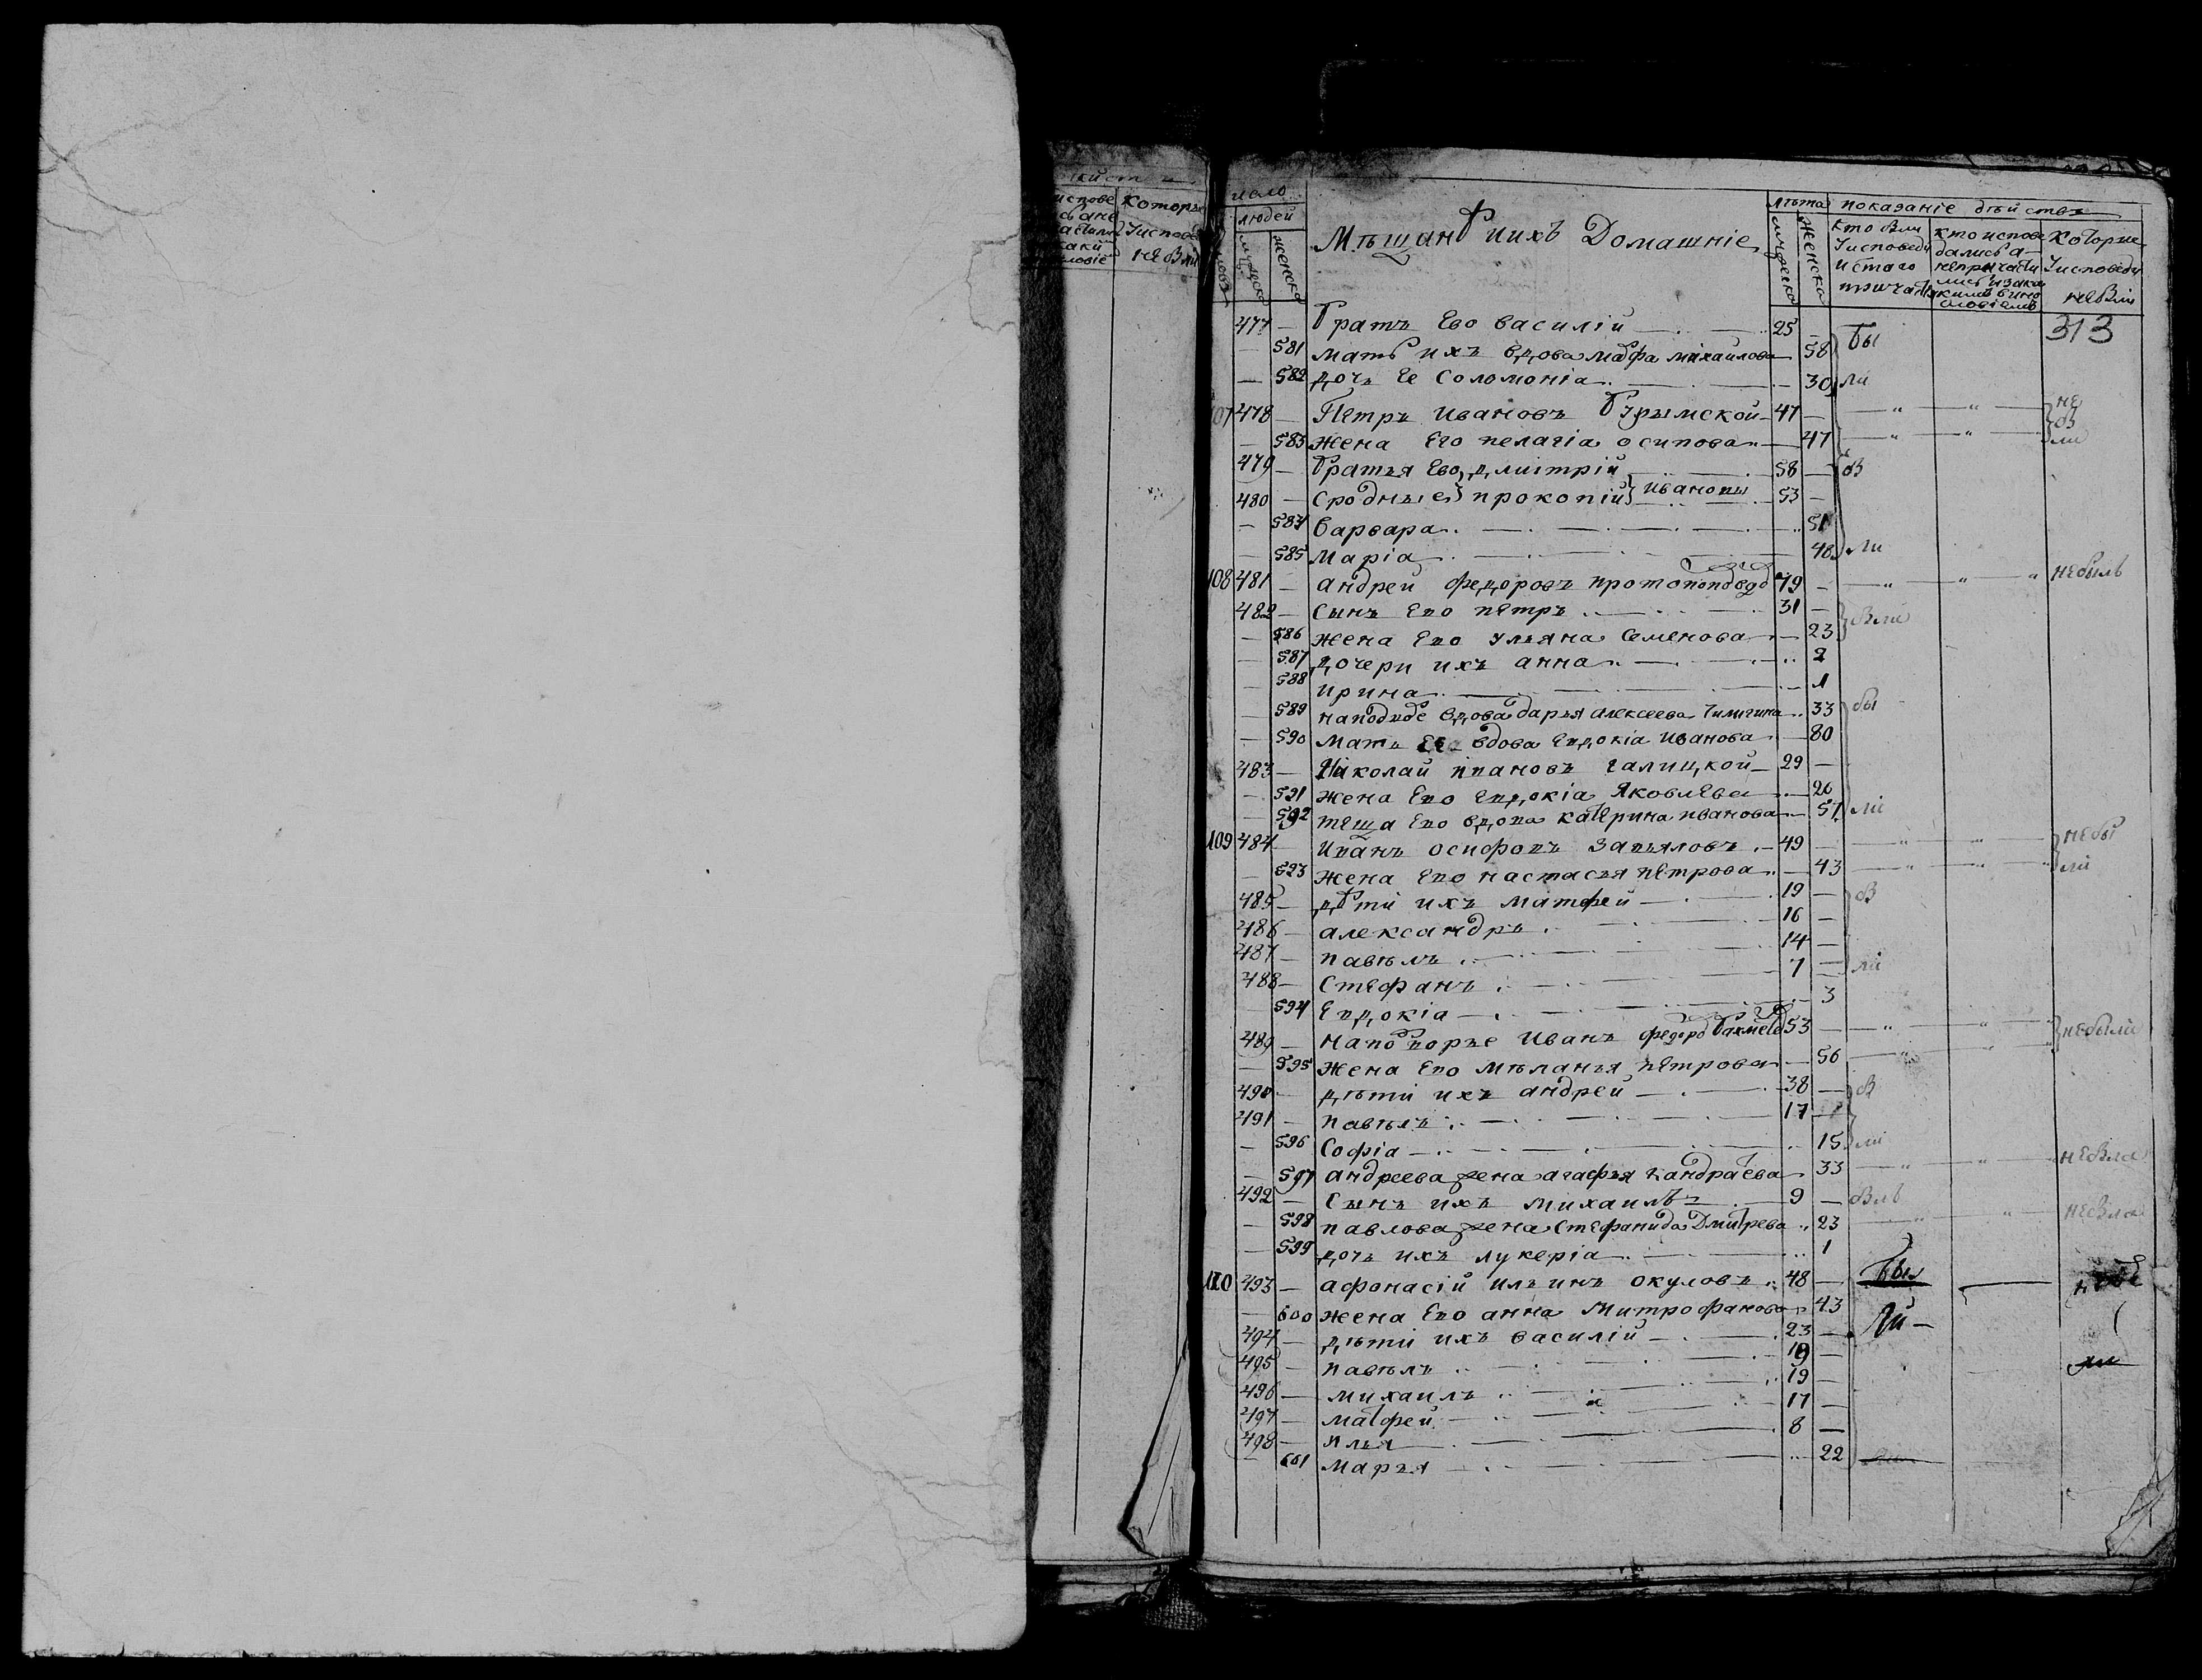 испове Которые
Уиспове
не вли
число
людей
мужеска
женска
Мѣщанѣ иихъ Домашнiе
лѣта
мужеска
женска
показанiе дѣйствъ
Кто были Уисповеди истаго причастия
кто исповедались а непричастились изакакимъ винословiемъ
Которые Уисповеди небыли
313
477 — братъ Ево василiй 25 — бы
— 581 мать ихъ вдова мафа михаилова — 58
— 582 дочь Ее Соломонiа — 30 ли
107 478 — Петръ ивановъ 47 — не
— 583 жена Его пелагiа осипова — 47 бы ли
479 — братья Ево, дмитрiй 58 — бы
480 — сродные прокопiй ивановы 53 —
— 584 варвара 51
— 585 марiа 48 ли
108 481 — андрей федоровъ 79 — небылъ
482 — сынъ Ево петръ 31 — были
— 586 жена Ево ульяна семенова — 23
— 587 дочери ихъ анна 2
— 588 ирина 1
— 589 вдова дарья алексеева 33 бы
— 590 мать вдова Евдокiа иванова — 80
483 — Николай ивановъ галицкой 29 —
— 591 жена Ево Евдокiа Яковлева 26
— 592 теща Ево вдова катерина иванова — 57 ли
109 484 — иванъ осифовъ завьяловъ 49 — небы
— 593 жена Ево настасья петрова — 43 ли
485 — дѣти ихъ матфей 19 — бы
486 — александръ 16 —
487 — павѣлъ 14 —
488 — стефанъ 7 — ли
— 594 Евдокiа 3
489 — наподворье иванъ 53 — небыли
— 595 жена Ево мѣланья петрова — 56
490 — дѣти ихъ андрей 38 — бы
491 — павѣлъ 17 —
— 596 софiа 15 ли
— 597 андреева жена агафья кандратева 33 небыла
492 — сынъ ихъ михаилъ 9 — былъ
— 598 павлова жена стефанида дмитрева 23 небыла
— 599 дочь ихъ лукерiа 1
110 493 — афонасiй ильинъ окуловъ 48 — бы
— 600 жена Ево анна митрофанова 43
494 — дѣти ихъ василiй 23 — ли
495 — павѣлъ 19 —
496 — михаилъ 19 —
497 — матфей 17 —
498 — илья 8 —
— 601 марья 22